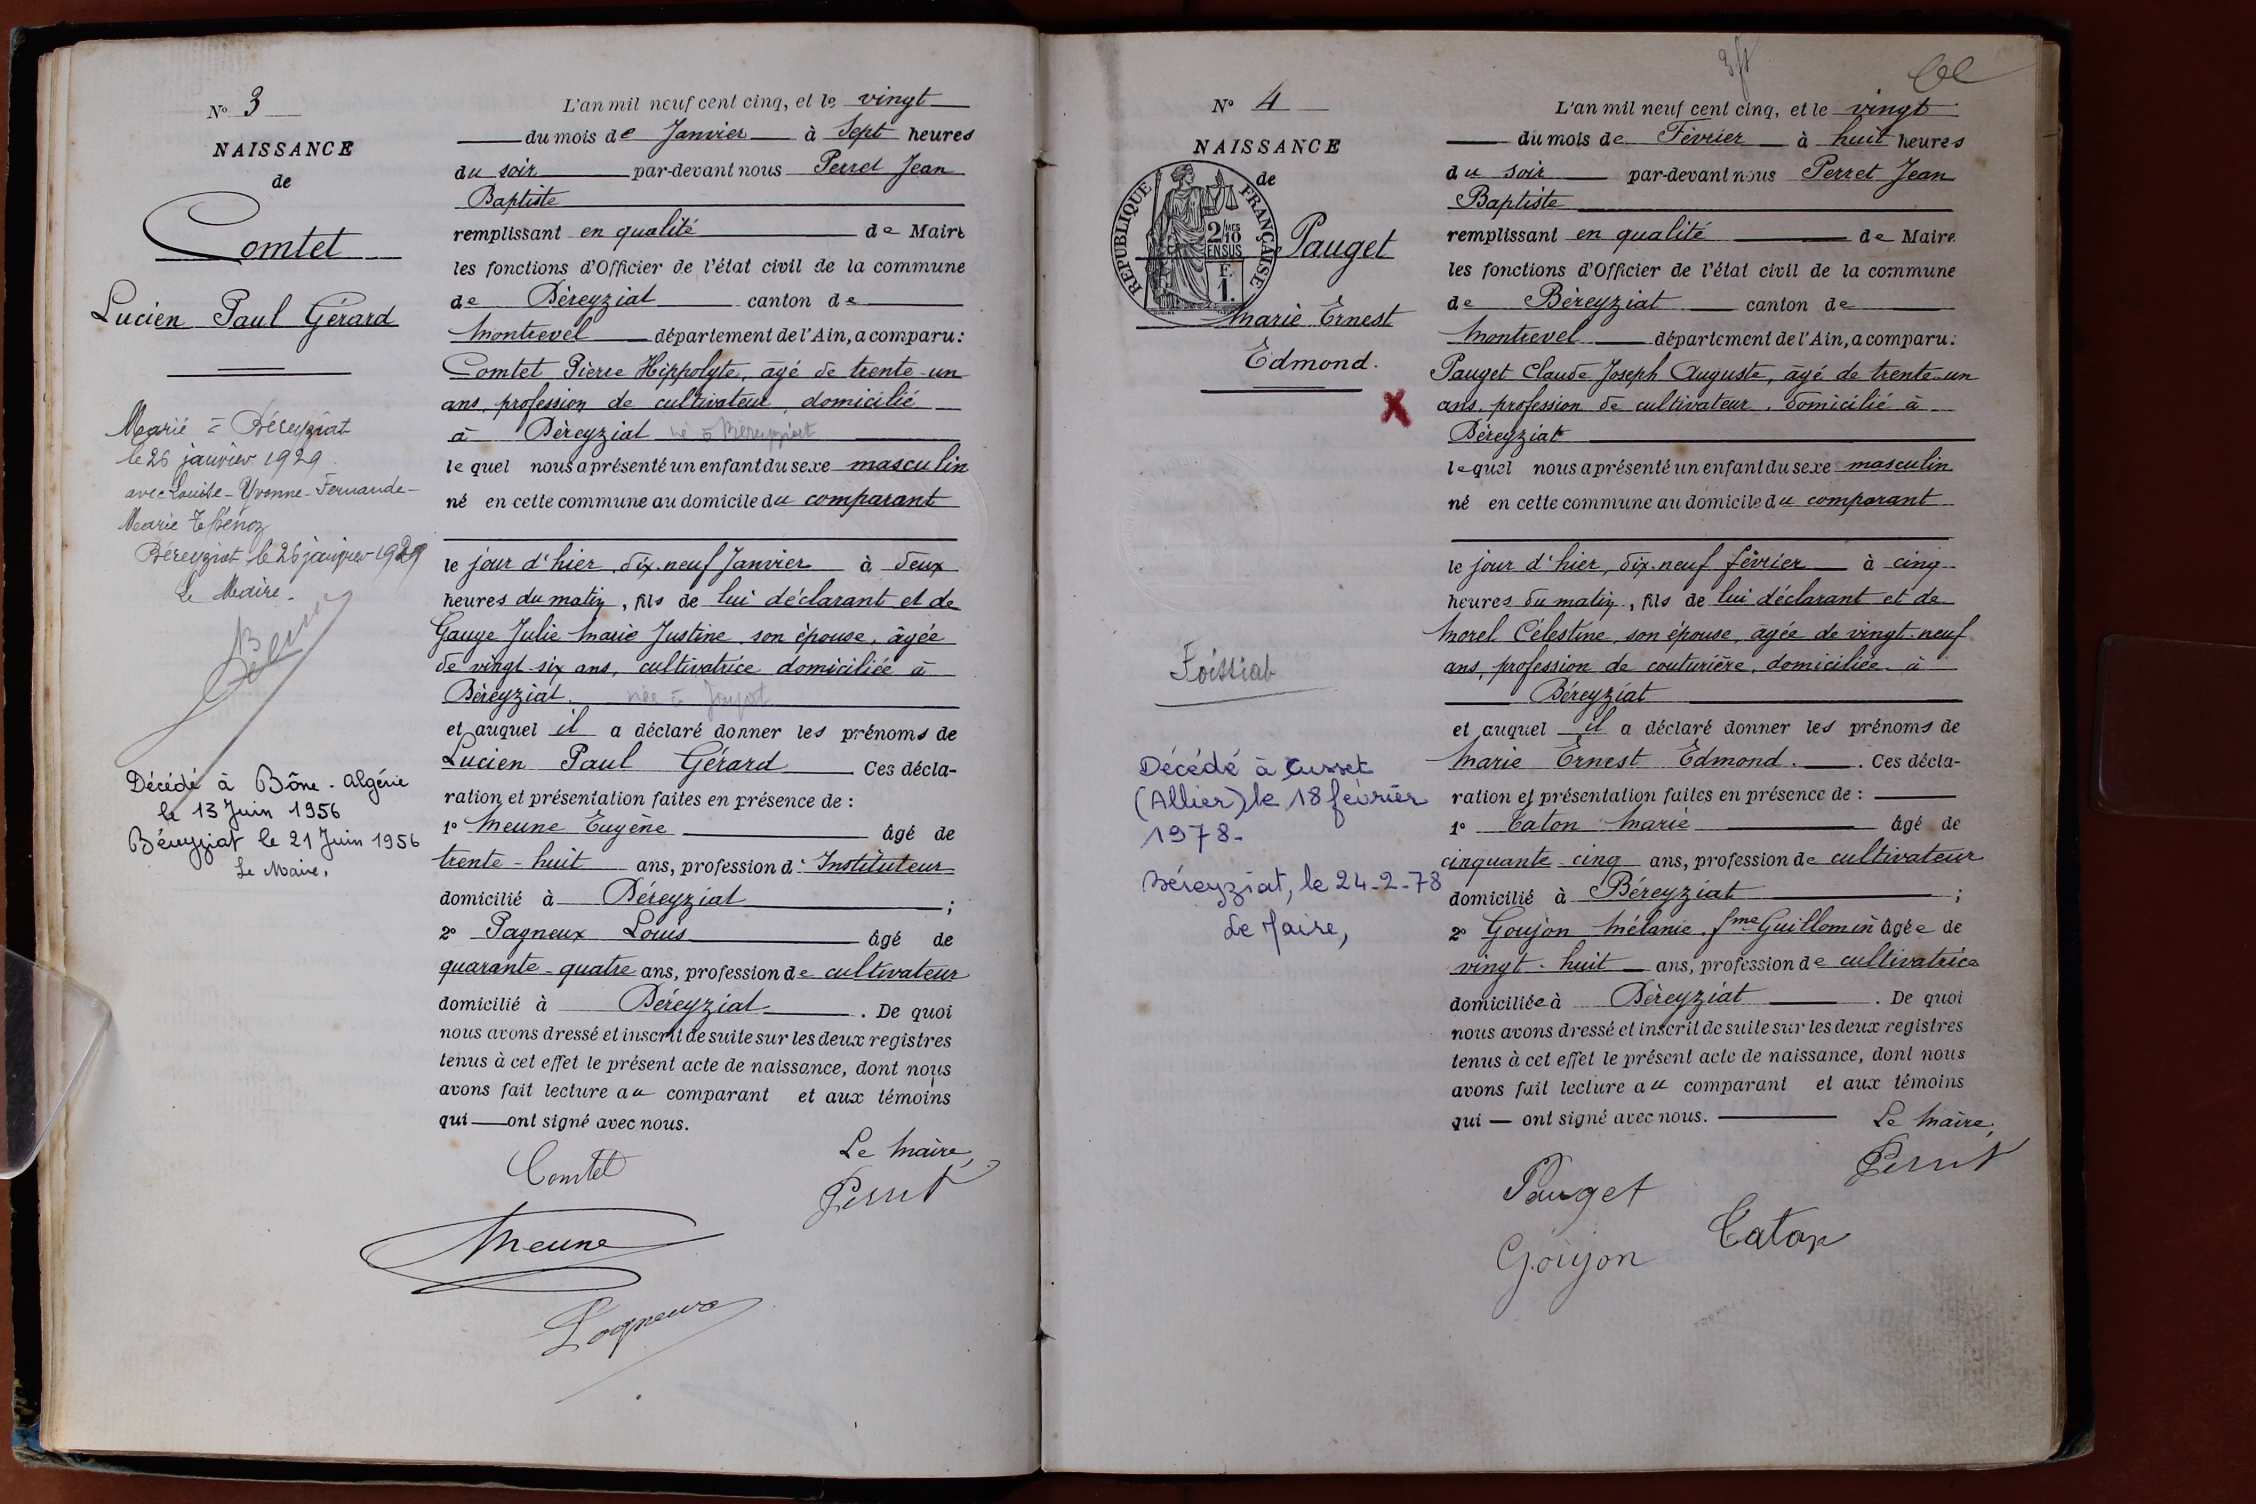 N° 3
NAISSANCE
de
Comtet
Lucien Paul Gérard
Marié à Béreyziat
le 26 janvier 1929
avec Louise-Yvonne-Fernande-
Marie Thénoz
Béreyziat le 26 janvier 1929
Le Maire.
Décédé à Bône - Algérie
le 13 Juin 1956
Béreyziat le 21 Juin 1956
Le Maire,
L'an mil neuf cent cinq, et le vingt
du mois de Janvier à Sept heures
du soir par-devant nous Perret Jean
Baptiste
remplissant en qualité de Maire
les fonctions d'Officier de l'état civil de la commune
de Béreyziat canton de
Montrevel département de l'Ain, a comparu:
Comtet Pierre Hippolyte, âgé de trente-un
ans, profession de cultivateur, domicilié
à Béreyziat né à Béreyziat
lequel nous a présenté un enfant du sexe masculin
né en cette commune au domicile du comparant
le jour d'hier, dix-neuf Janvier à deux
heures du matin, fils de lui déclarant et de
Gauge Julie Marie Justine, son épouse, âgée
de vingt-six ans, cultivatrice domiciliée à
Béreyziat. née à
et auquel il a déclaré donner les prénoms de
Lucien Paul Gérard Ces décla-
ration et présentation faites en présence de :
1° Meune Eugène âgé de
trente-huit ans, profession d'Instituteur
domicilié à Béreyziat ;
2° Pagneux Louis âgé de
quarante-quatre ans, profession de cultivateur
domicilié à Béreyziat . De quoi
nous avons dressé et inscrit de suite sur les deux registres
tenus à cet effet le présent acte de naissance, dont nous
avons fait lecture au comparant et aux témoins
qui ont signé avec nous.
Le Maire,
Comtet
Perret
Meune
Pagneux
N° 4
NAISSANCE
de
REPUBLIQUE FRANÇAISE
2/10 EN SUS
F.
1.
Pauget
Marie Ernest
Edmond.
X
Foissiat
Décédé à Cusset
(Allier) le 18 février
1978-
Béreyziat, le 24-2-78
Le Maire,
L'an mil neuf cent cinq, et le vingt
du mois de Février à huit heures
du soir par-devant nous Perret Jean
Baptiste
remplissant en qualité de Maire
les fonctions d'Officier de l'état civil de la commune
de Béreyziat canton de
Montrevel département de l'Ain, a comparu:
Pauget Claude Joseph Auguste, âgé de trente-un
ans, profession de cultivateur, domicilié à
Béreyziat
lequel nous a présenté un enfant du sexe masculin
né en cette commune au domicile du comparant
le jour d'hier, dix-neuf février à cinq
heures du matin, fils de lui déclarant et de
Morel Célestine, son épouse, âgée de vingt-neuf
ans, profession de couturière, domiciliée à
Béreyziat
et auquel il a déclaré donner les prénoms de
Marie Ernest Edmond. Ces décla-
ration et présentation faites en présence de :
1° Caton Marie âgé de
cinquante cinq ans, profession de cultivateur
domicilié à Béreyziat ;
2° Goujon Mélanie fme Guillemin âgée de
vingt-huit ans, profession de cultivatrice
domiciliée à Béreyziat . De quoi
nous avons dressé et inscrit de suite sur les deux registres
tenus à cet effet le présent acte de naissance, dont nous
avons fait lecture au comparant et aux témoins
qui ont signé avec nous.
Le Maire,
Perret
Pauget
Caton
Goujon